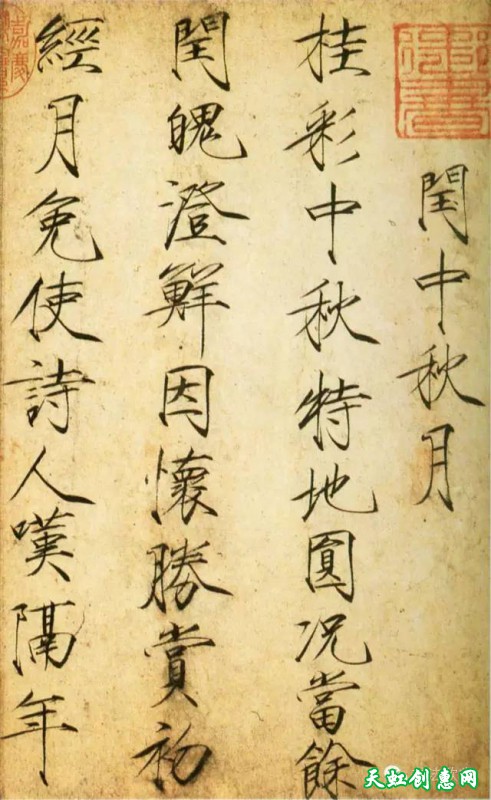 閏中秋月
桂彩中秋特地圓况當餘
閏魄澄鮮因懷勝賞初
經月免使詩人嘆隔年
天虹创惠网